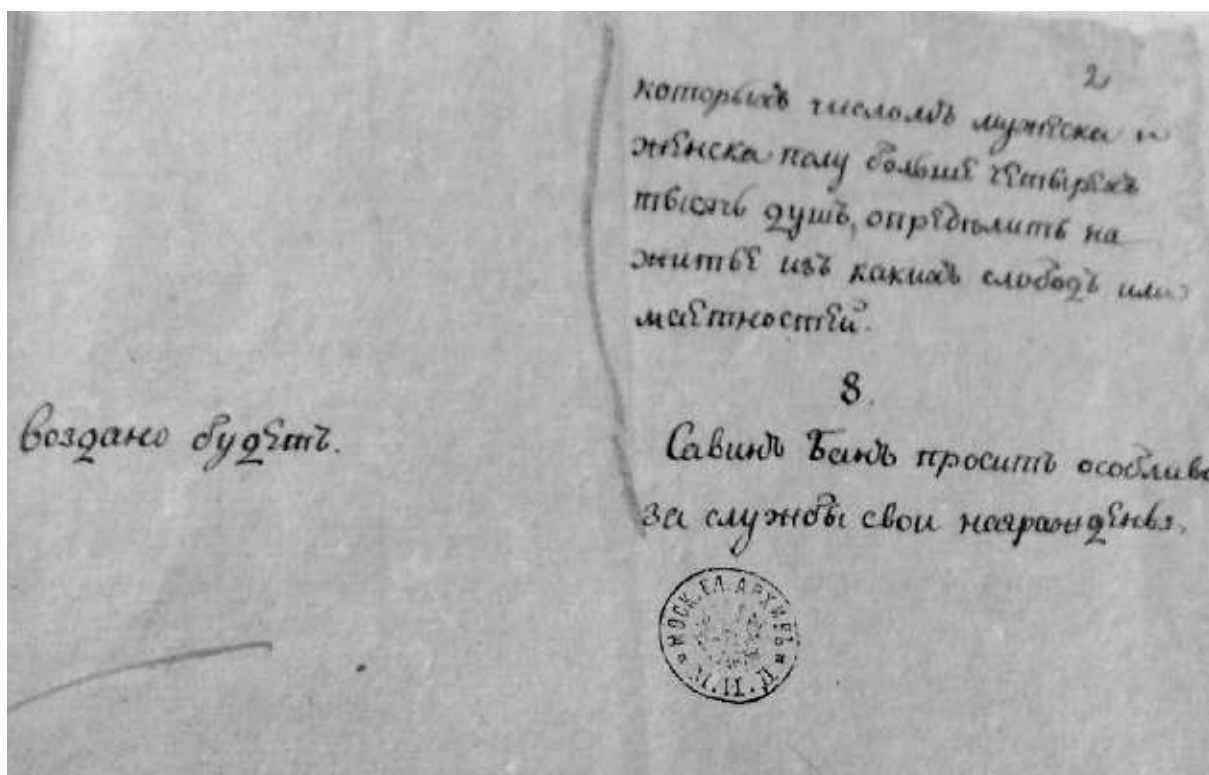 2
которыхъ числомъ мужеска и
женска полу больше четырехъ
тысячь душъ, определить на
житье изъ какихъ слободъ или
маетностей.
8.
воздано будетъ.
Савинъ Банъ проситъ особливо
за службы свои награжденья.
МОСК. ГЛ. АРХИВЪ М. И. Д.